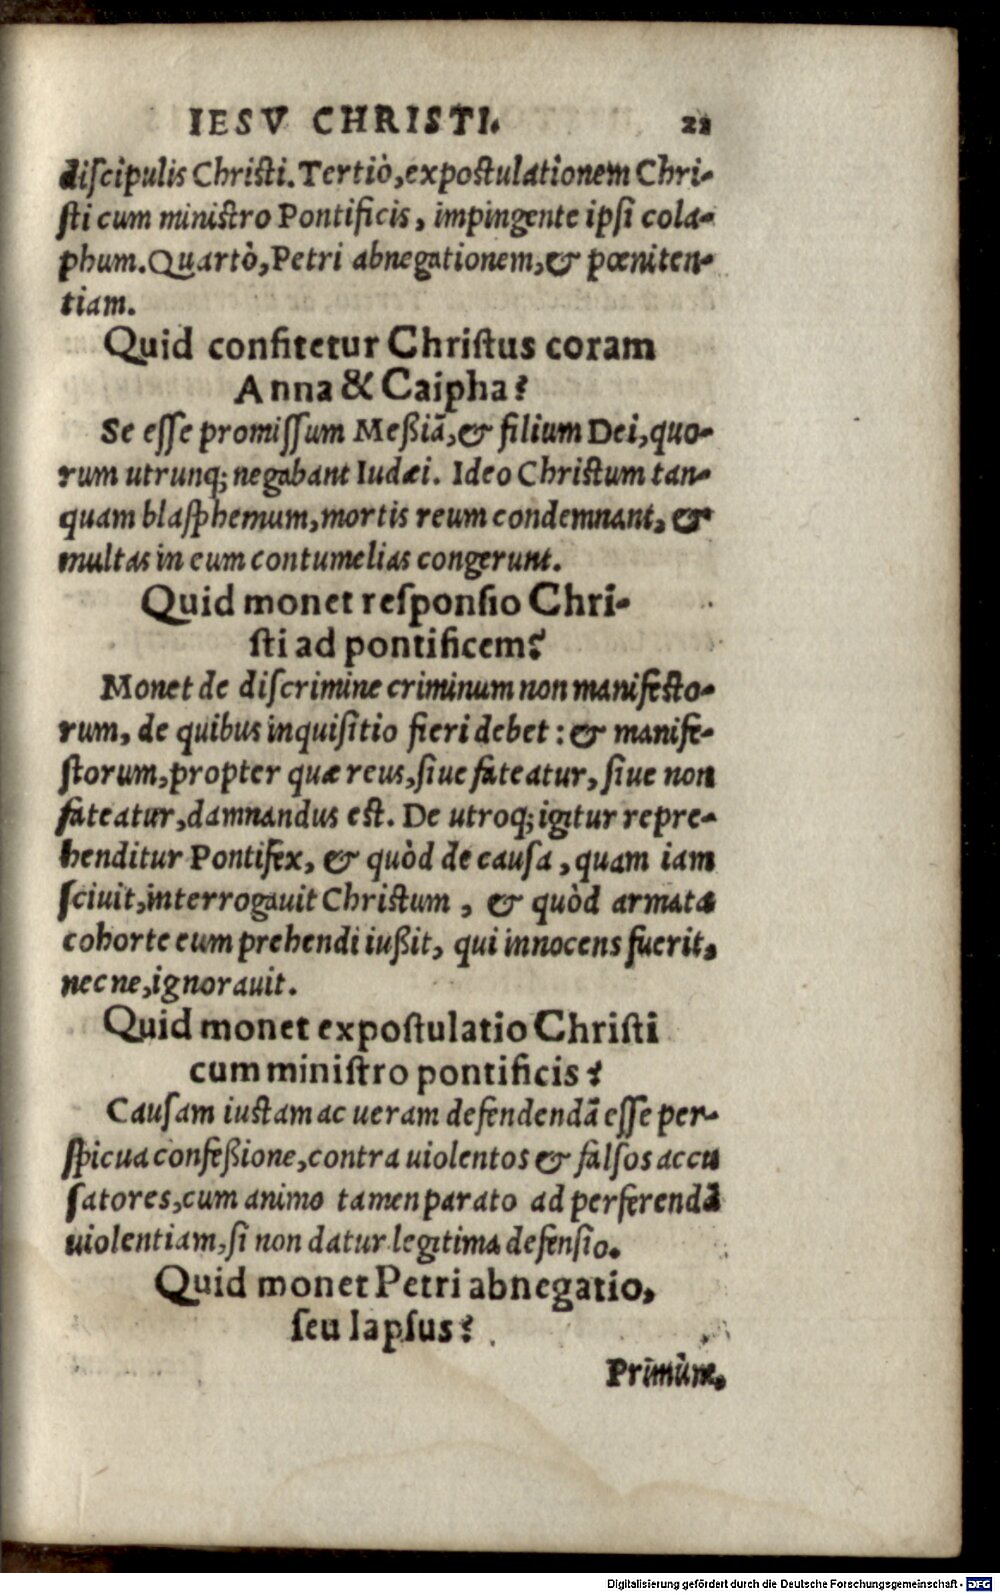 IESV CHRISTI. 22
diſcipulis Chriſti. Tertiò, expoſtulationem Chri-
ſti cum miniſtro Pontificis, impingente ipſi cola-
phum. Quartò, Petri abnegationem, & pœniten-
tiam.
Quid confitetur Chriſtus coram
Anna & Caipha?
Se eſſe promiſſum Meßiã, & filium Dei, quo-
rum utrunq; negabant Iudæi. Ideo Chriſtum tan-
quam blaſphemum, mortis reum condemnant, &
multas in eum contumelias congerunt.
Quid monet reſponſio Chri-
ſti ad pontificem?
Monet de diſcrimine criminum non manifeſto-
rum, de quibus inquiſitio fieri debet: & manife-
ſtorum, propter quæ reus, ſiue fateatur, ſiue non
fateatur, damnandus eſt. De utroq; igitur repre-
henditur Pontifex, & quòd de cauſa, quam iam
ſciuit, interrogauit Chriſtum, & quòd armata
cohorte eum prehendi iußit, qui innocens fuerit,
nec ne, ignorauit.
Quid monet expoſtulatio Chriſti
cum miniſtro pontificis?
Cauſam iuſtam ac ueram defendendã eſſe per-
ſpicua confeßione, contra uiolentos & falſos accu
ſatores, cum animo tamen parato ad perferendã
uiolentiam, ſi non datur legitima defenſio.
Quid monet Petri abnegatio,
ſeu lapſus?
Primùm,
Digitalisierung gefördert durch die Deutsche Forschungsgemeinschaft - DFG